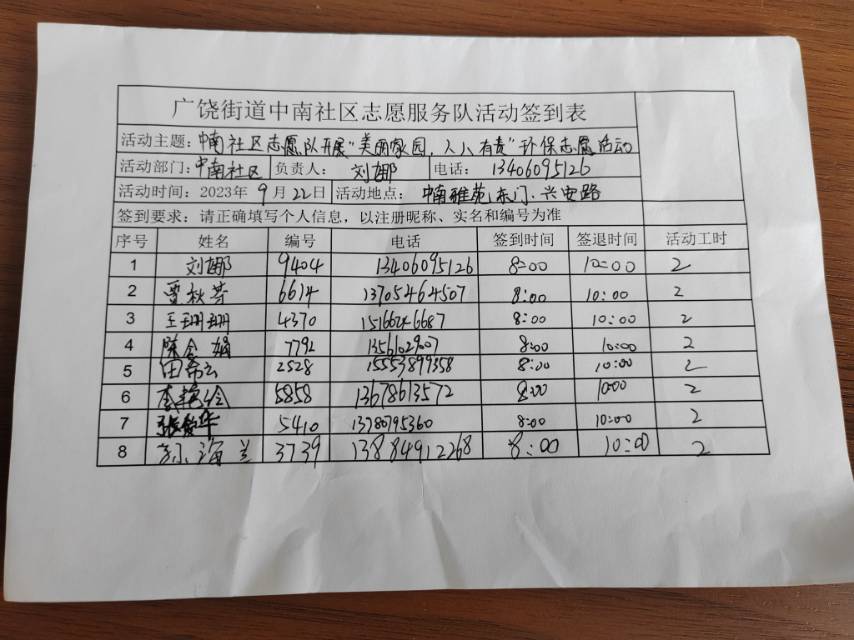 广饶街道中南社区志愿服务队活动签到表
活动主题：中南社区志愿队开展"美丽家园，人人有责"环保志愿活动
活动部门：中南社区 负责人： 刘娜 电话：13406095126
活动时间：2023年 9 月 22 日 活动地点： 中南雅苑东门、兴安路
签到要求：请正确填写个人信息，以注册昵称、实名和编号为准
序号 姓名 编号 电话 签到时间 签退时间 活动工时
1 刘娜 9404 13406095126 8:00 10:00 2
2 贾秋芬 6614 13705464507 8:00 10:00 2
3 王珊珊 4370 15166246687 8:00 10:00 2
4 陈会娟 7792 8:00 10:00 2
5 田希云 2528 15553899358 8:00 10:00 2
6 李 5858 13678613572 8:00 10:00 2
7 张爱华 5410 13780795360 8:00 10:00 2
8 孙海兰 3739 13884912268 8:00 10:00 2